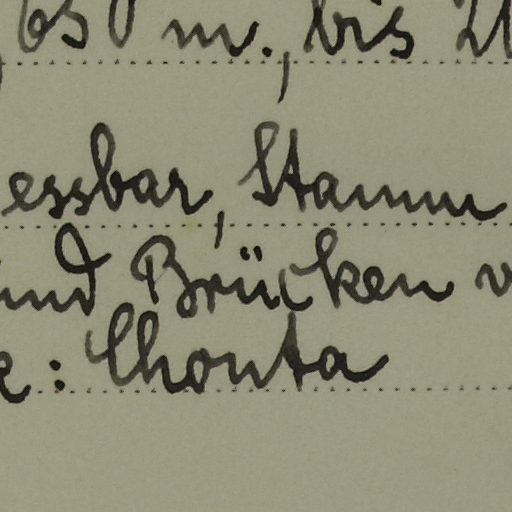 650 m., bis 2
essbar, Stamm
und Brücken
: Chonta